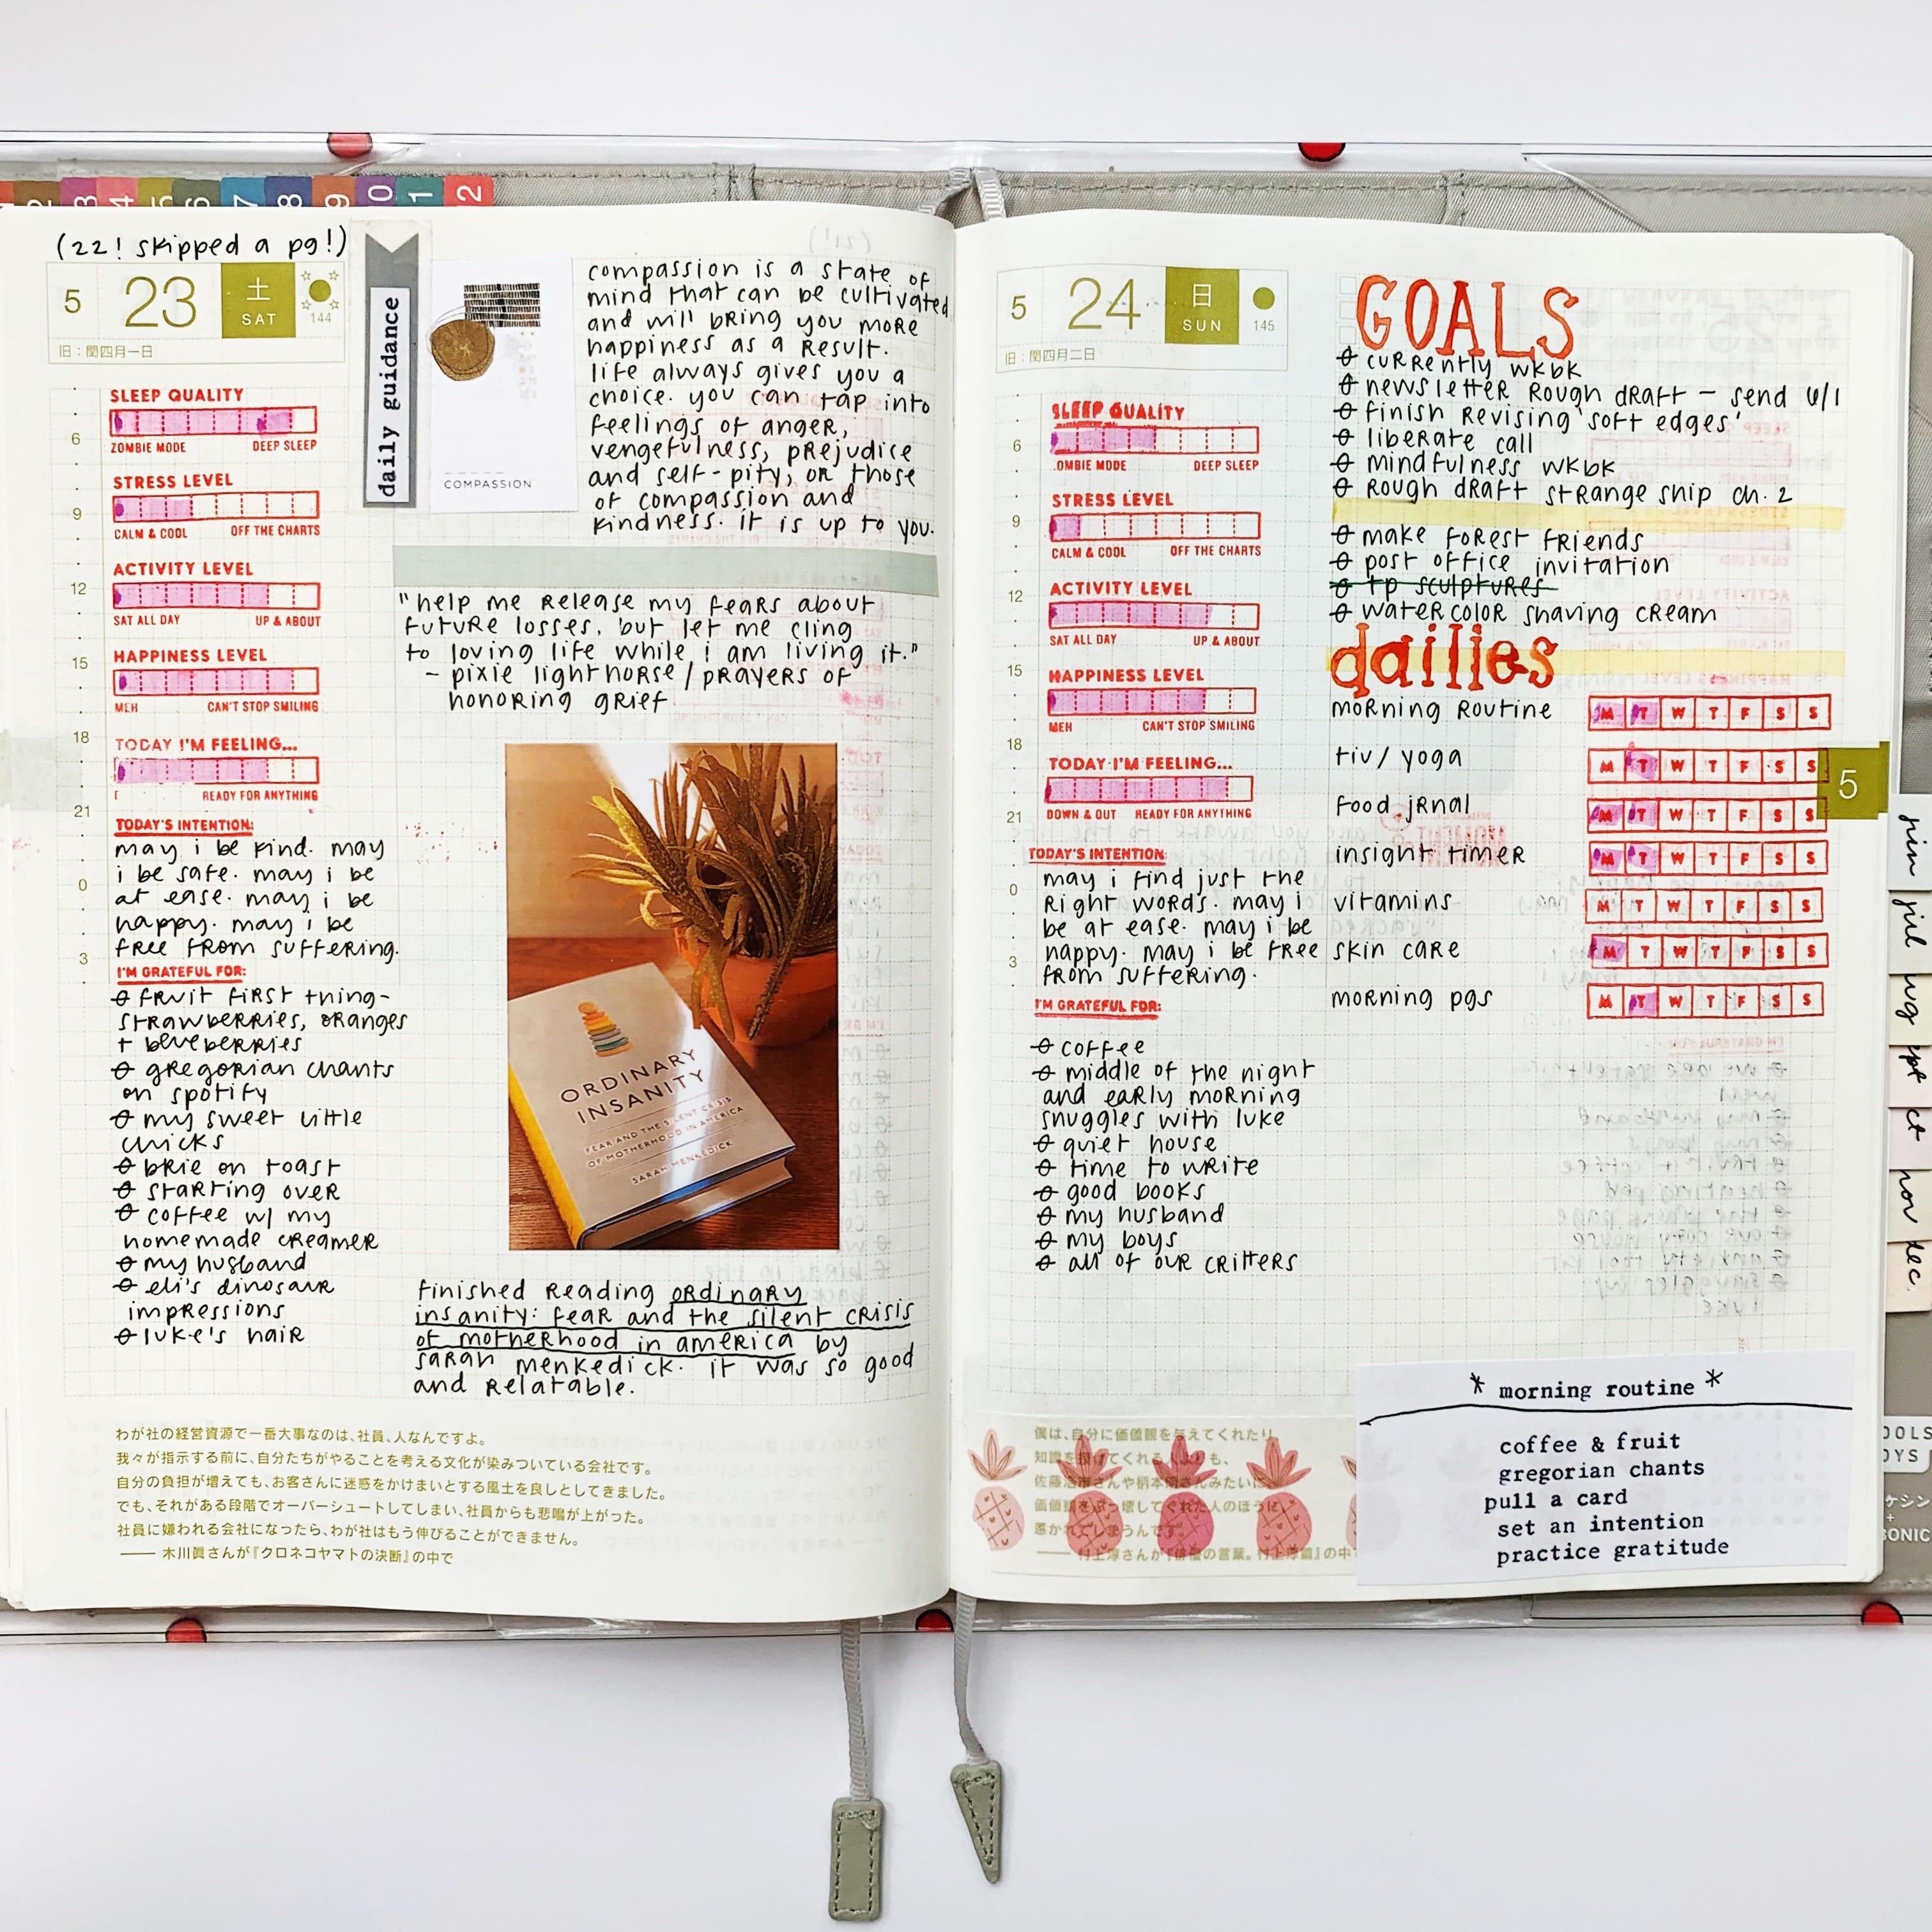 2
3
4
5
6
7
8
9
0
1
2
(22! skipped a pg!)
5
23
土
SAT
144
旧：閏四月一日
6
9
12
15
18
21
0
3
SLEEP QUALITY
ZOMBIE MODE DEEP SLEEP
STRESS LEVEL
CALM & COOL OFF THE CHARTS
ACTIVITY LEVEL
SAT ALL DAY UP & ABOUT
HAPPINESS LEVEL
MEH CAN'T STOP SMILING
TODAY I'M FEELING...
READY FOR ANYTHING
TODAY'S INTENTION:
may i be kind. may
i be safe. may i be
at ease. may i be
happy. may i be
free from suffering.
I'M GRATEFUL FOR:
fruit first thing-
strawberries, oranges
+ blueberries
gregorian chants
on spotify
my sweet little
chicks
brie on toast
starting over
coffee w/ my
homemade creamer
my husband
eli's dinosaur
impressions
luke's hair
daily guidance
COMPASSION
compassion is a state of
mind that can be cultivated
and will bring you more
happiness as a result.
life always gives you a
choice. you can tap into
feelings of anger,
vengefulness, prejudice
and self-pity, or those
of compassion and
kindness. it is up to you.
"help me release my fears about
future losses, but let me cling
to loving life while i am living it."
- pixie lighthorse / prayers of
honoring grief
ORDINARY
INSANITY
FEAR AND THE SILENT CRISIS
OF MOTHERHOOD IN AMERICA
SARAH MENKEDICK
finished reading ordinary
insanity: fear and the silent crisis
of motherhood in america by
sarah menkedick. it was so good
and relatable.
わが社の経営資源で一番大事なのは、社員、人なんですよ。
我々が指示する前に、自分たちがやることを考える文化が染みついている会社です。
自分の負担が増えても、お客さんに迷惑をかけまいとする風土を良しとしてきました。
でも、それがある段階でオーバーシュートしてしまい、社員からも悲鳴が上がった。
社員に嫌われる会社になったら、わが社はもう伸びることができません。
―― 木川眞さんが『クロネコヤマトの決断』の中で
5
24
日
SUN
145
旧：閏四月二日
6
9
12
15
18
21
0
3
SLEEP QUALITY
OMBIE MODE DEEP SLEEP
STRESS LEVEL
CALM & COOL OFF THE CHARTS
ACTIVITY LEVEL
SAT ALL DAY UP & ABOUT
HAPPINESS LEVEL
MEH CAN'T STOP SMILING
TODAY I'M FEELING...
DOWN & OUT READY FOR ANYTHING
TODAY'S INTENTION:
may i find just the
right words. may i
be at ease. may i be
happy. may i be free
from suffering.
I'M GRATEFUL FOR:
coffee
middle of the night
and early morning
snuggles with luke
quiet house
time to write
good books
my husband
my boys
all of our critters
GOALS
currently wkbk
newsletter rough draft - send 6/1
finish revising 'soft edges'
liberate call
mindfulness wkbk
rough draft strange ship ch. 2
make forest friends
post office invitation
tp sculptures
watercolor shaving cream
dailies
morning routine M T W T F S S
tiv/ yoga M T W T F S S
food jrnal M T W T F S S
insight timer M T W T F S S
vitamins M T W T F S S
skin care M T W T F S S
morning pgs M T W T F S S
5
僕は、自分に価値観を与えてくれたり、
知識を授けてくれる人よりも、
価値観をぶっ壊してくれた人のほうに
惹かれてしまうんです。
* morning routine *
coffee & fruit
gregorian chants
pull a card
set an intention
practice gratitude
jun
jul
ug
pt
ct
nov
dec.
OOLS
OYS